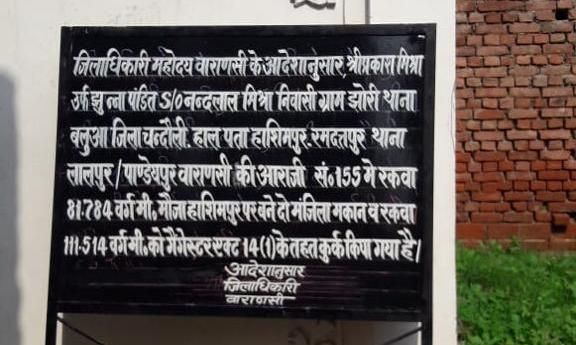 जिलाधिकारी महोदय वाराणसी के आदेशानुसार, श्रीप्रकाश मिश्रा
उर्फ झुन्ना पंडित S/O नन्दलाल मिश्रा निवासी ग्राम झोरी थाना
बलुआ जिला चन्दौली. हाल पता हाशिमपुर. रमदत्तपुर थाना
लालपुर/पाण्डेयपुर वाराणसी की आराजी सं॰155 मे रकवा
81.784 वर्ग मी॰ मौजा हाशिमपुर पर बने दो मंजिला मकान व रकवा
111.514 वर्ग मी॰ को गैंगेस्टर एक्ट 14(1) के तहत कुर्क किया गया है।
आदेशानुसार
जिलाधिकारी
वाराणसी